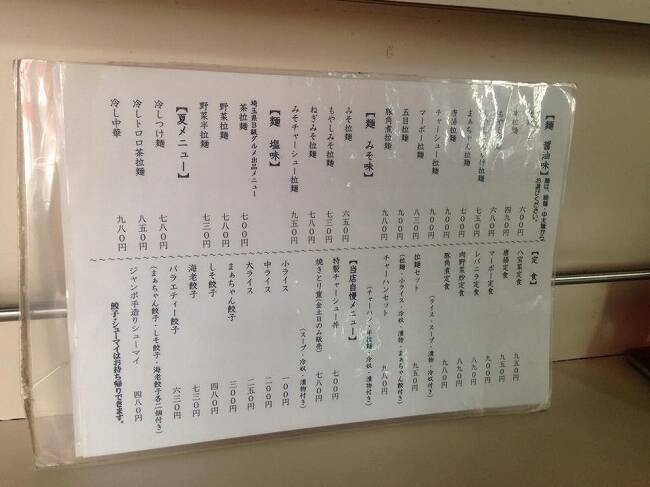 【麺 醤油味】麺は、細麺・中太麺から
お選びください。
拉麺 六〇〇円
拉麺 四九〇円
六八〇円
け拉麺 七五〇円
まぁちゃん拉麺 七〇〇円
唐揚拉麺 九〇〇円
チャーシュー拉麺 九〇〇円
マーボー拉麺 八三〇円
五目拉麺 九〇〇円
豚角煮拉麺 九八〇円
【麺 みそ味】
みそ拉麺 六五〇円
もやしみそ拉麺 七三〇円
ねぎみそ拉麺 七八〇円
みそチャーシュー拉麺 九五〇円
【麺 塩味】
埼玉県B級グルメ出品メニュー
茶拉麺 七〇〇円
野菜拉麺 七八〇円
野菜半拉麺 七三〇円
【夏メニュー】
冷しつけ麺 七八〇円
冷しトロロ茶拉麺 八五〇円
冷し中華 九八〇円
【定 食】
八宝菜定食 九五〇円
唐揚定食 九五〇円
マーボー定食 九〇〇円
レバニラ定食 八九〇円
肉野菜炒定食 八九〇円
豚角煮定食 九八〇円
(ライス・スープ・漬物・冷奴付き)
拉麺セット 九五〇円
(拉麺・小ライス・冷奴・漬物・まぁちゃん餃付き)
チャーハンセット 九八〇円
(チャーハン・半拉麺・冷奴・漬物付き)
【当店自慢メニュー】
特製チャーシュー丼 七〇〇円
焼きとり重(金土日のみ販売) 七八〇円
(スープ・冷奴・漬物付き)
小ライス 一〇〇円
中ライス 二〇〇円
大ライス 二五〇円
まぁちゃん餃子 三〇〇円
しそ餃子 四八〇円
海老餃子 七三〇円
バラエティー餃子 六三〇円
(まぁちゃん餃子・しそ餃子・海老餃子各二個付き)
ジャンボ手造りシューマイ 四八〇円
餃子・シューマイはお持ち帰りできます。